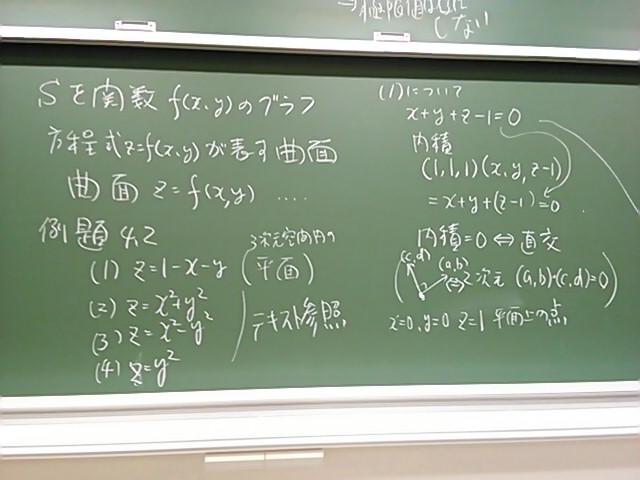 しない
Sを関数 f(x,y)のグラフ
方程式z=f(x,y)が表す曲面
曲面 z=f(x,y) ....
例題 4.2
(1) z=1-x-y
3次元空間内の
(平面)
(2) z=x²+y²
(3) z=x²-y²
(4) z=y²
テキスト参照
(1)について
x+y+z-1=0
内積
(1,1,1)(x,y,z-1)
=x+y+(z-1)=0
内積=0⇔直交
(c,d)
(a,b)
2次元 (a,b)・(c,d)=0)
x=0,y=0 z=1 平面上の点